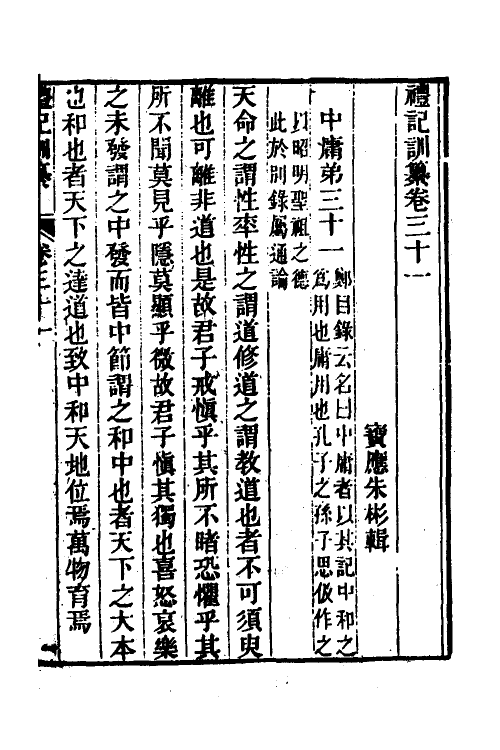 禮記訓纂卷三十一
寶應朱彬輯
中庸弟三十一
鄭目錄云名曰中庸者以其記中和之
爲用也庸用也孔子之孫子思伋作之
以昭明聖祖之德
此於別錄屬通論
天命之謂性率性之謂道修道之謂教道也者不可須臾
離也可離非道也是故君子戒慎乎其所不睹恐懼乎其
所不聞莫見乎隱莫顯乎微故君子慎其獨也喜怒哀樂
之未發謂之中發而皆中節謂之和中也者天下之大本
也和也者天下之達道也致中和天地位焉萬物育焉
禮記訓纂
卷三十一